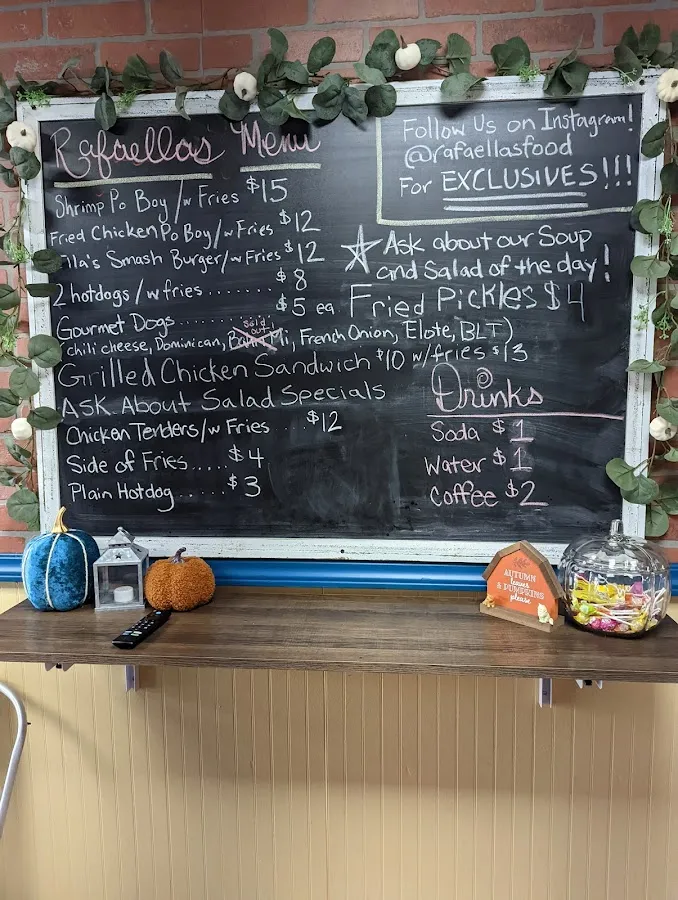 Rafaellas Menu
Shrimp Po Boy /w Fries $15
Fried Chicken Po Boy /w Fries $12
Ella's Smash Burger /w Fries $12
2 hotdogs /w fries ....... $8
Gourmet Dogs .......... $5 ea
sold out!
chili cheese, Dominican, Banh Mi, French Onion, Elote, BLT)
Grilled Chicken Sandwich $10 w/fries $13
ASK About Salad Specials
Chicken Tenders /w Fries .... $12
Side of Fries ..... $4
Plain Hotdog ...... $3
Follow Us on Instagram!
@rafaellasfood
For EXCLUSIVES!!!
Ask about our Soup
and Salad of the day!
Fried Pickles $4
Drinks
Soda $1
Water $1
Coffee $2
AUTUMN
leaves
& PUMPKINS
please